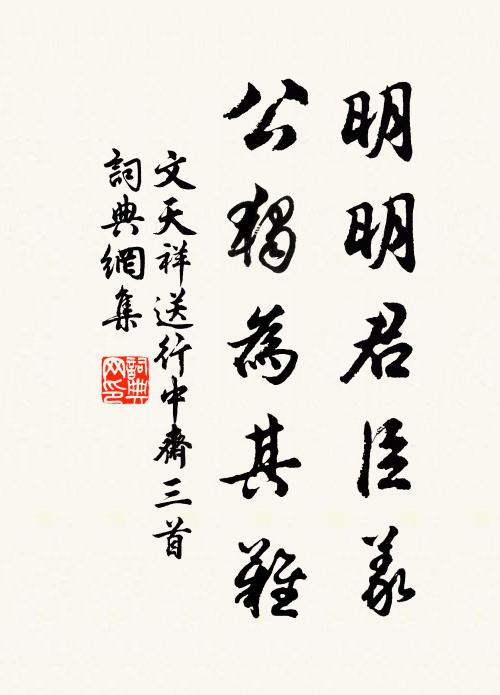 明明君臣義
公獨為其難
文天祥送行中齋三首
詞典網集
詞典網印